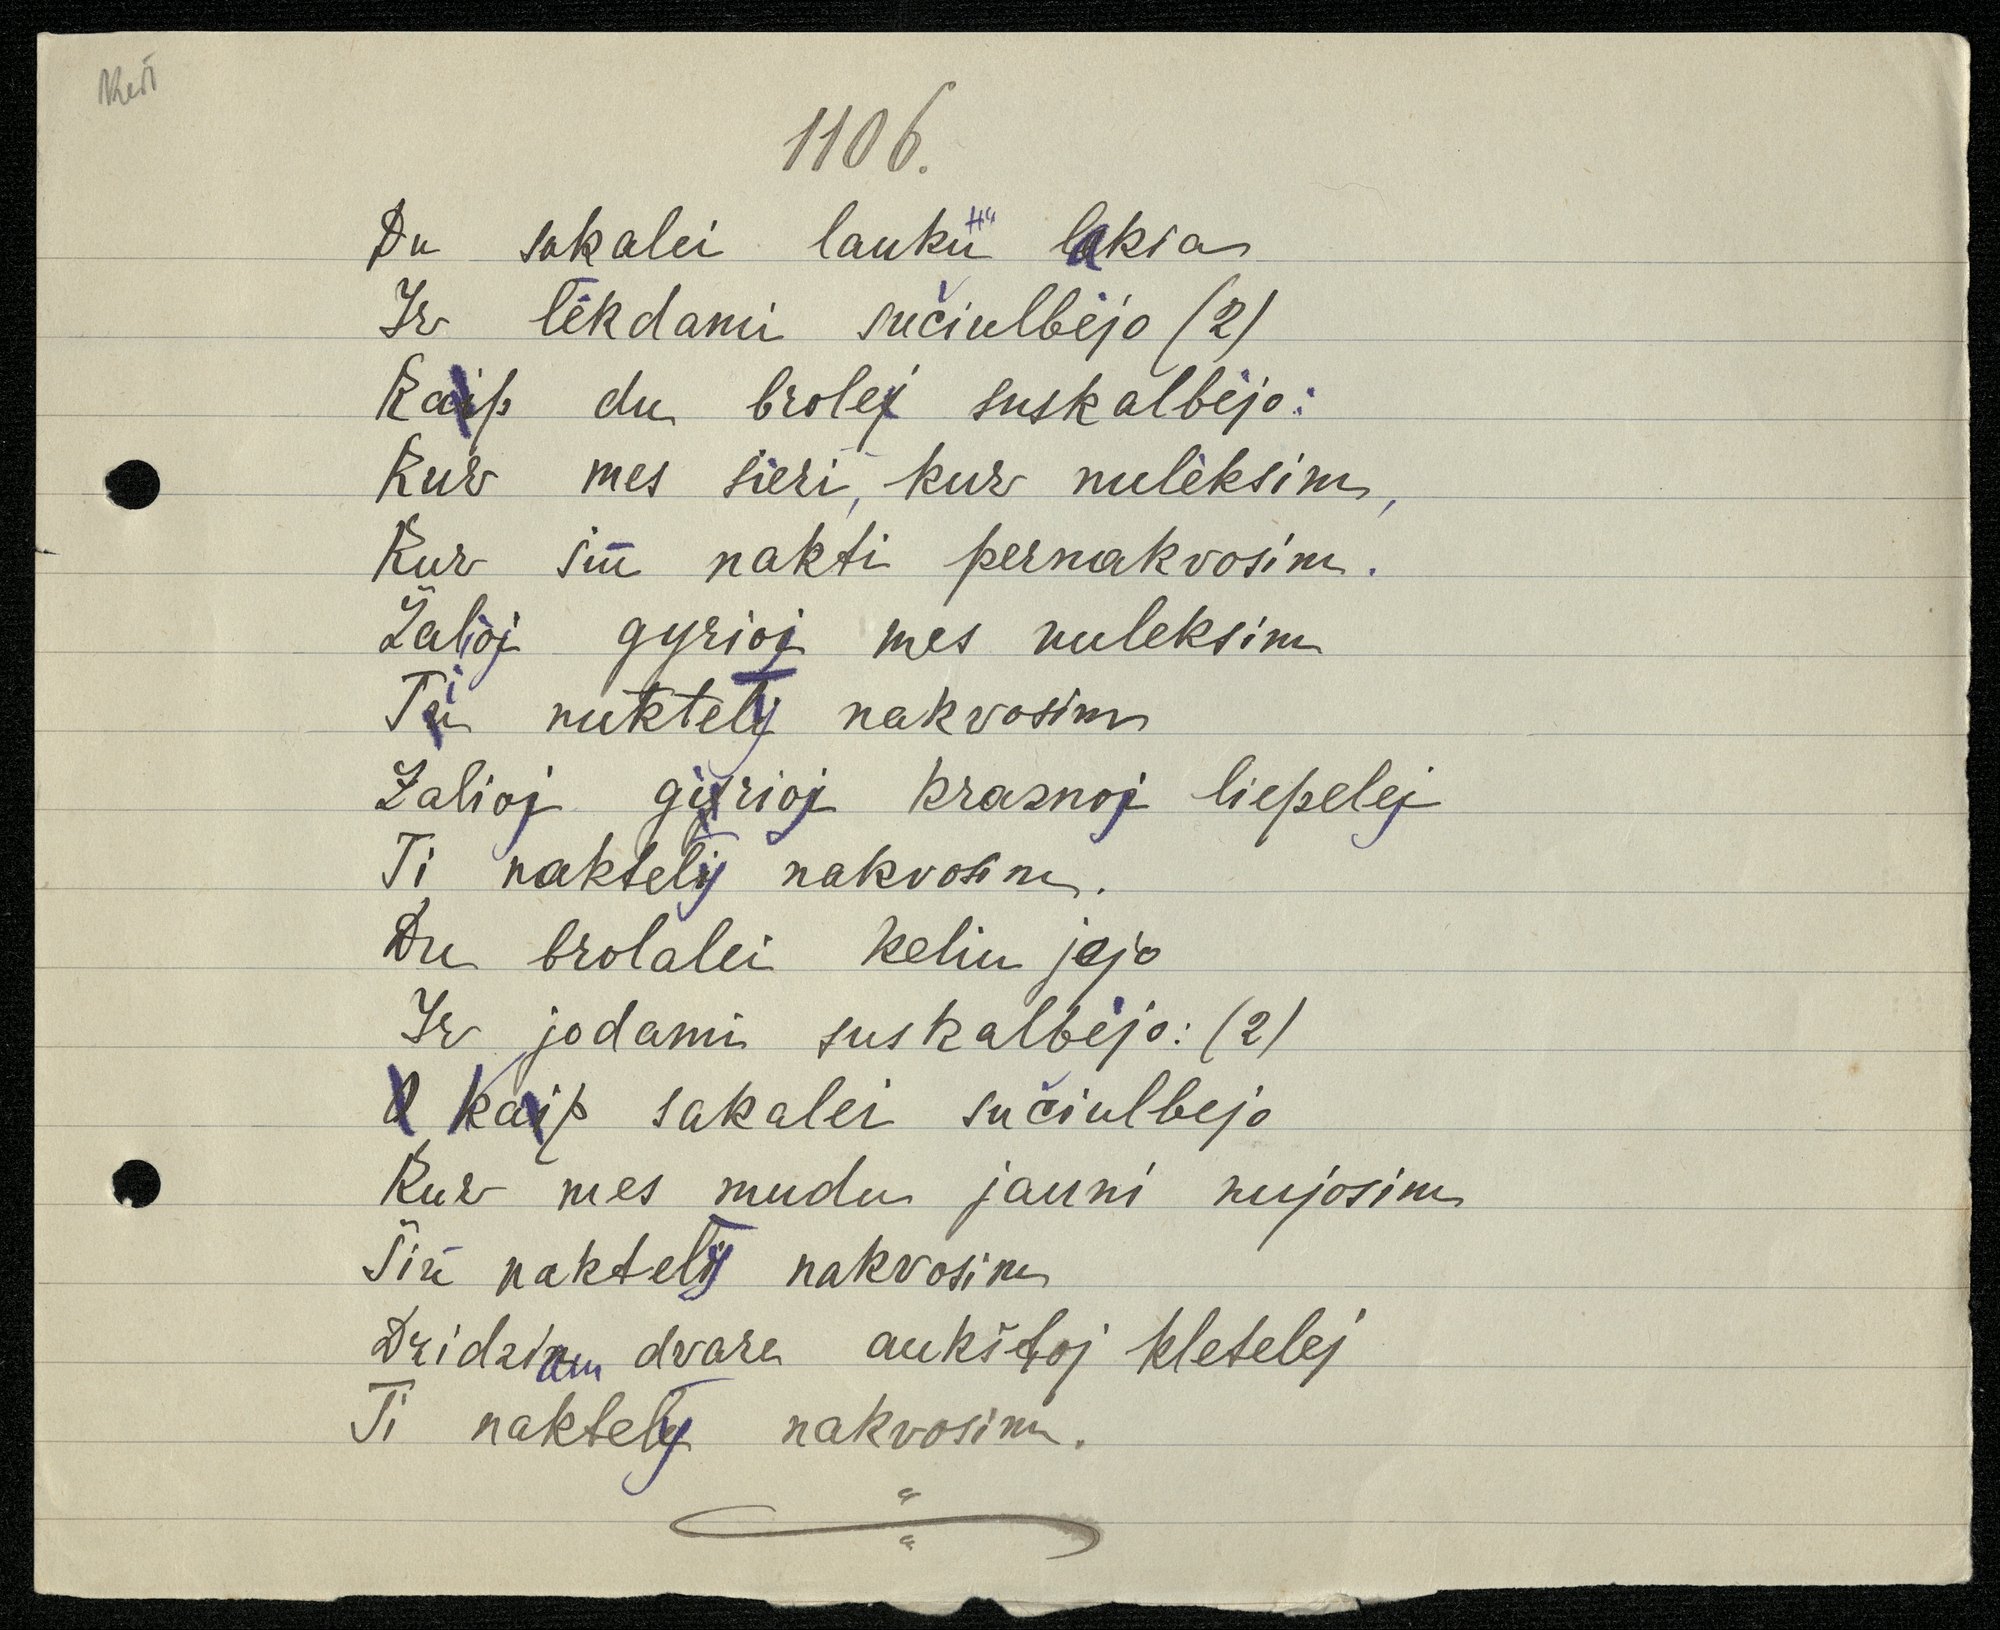 1106.
Du sakalei laukū lakia
Ir lēkdami sučiulbėjo (2)
Kaip du brolej suskalbėjo:
Kur mes sieri, kur nulėksim,
Kur šiū nakti pernakvosim.
Žalioj gyrioj mes nuleksim
Ti naktely nakvosim
Žalioj girioj kraznoj liepelej
Ti naktely nakvosim.
Du brolalei keliu jojo
Ir jodami suskalbėjo: (2)
O kaip sakalei sučiulbejo
Kur mes mudu jauni nujosim
Šiū naktely nakvosim
Dzidziam dvare aukštoj kletelej
Ti naktely nakvosim.